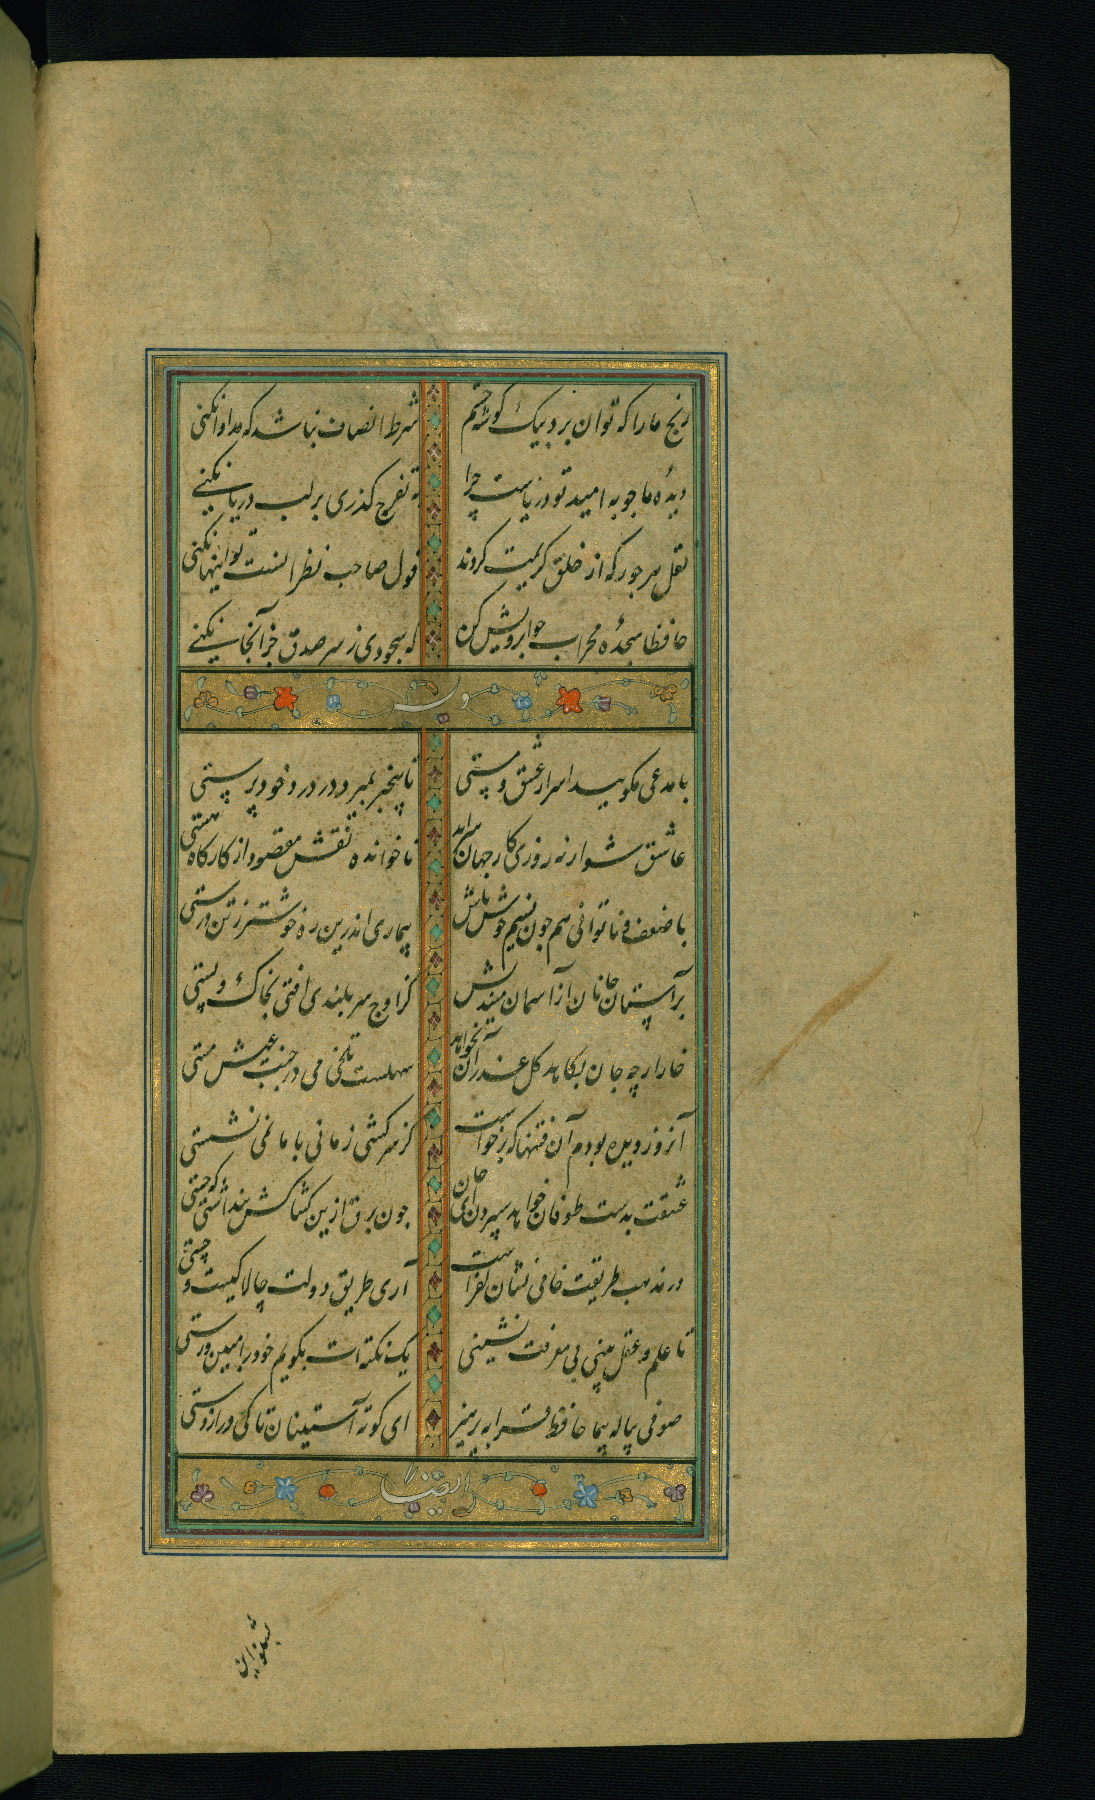 رنج ما را که توان برد بیک گوشه چشم شرط انصاف نباشد که مداوا نکنی
دیده ما جو به امید تو دریاست چرا به تفرج گذری بر لب دریا نکنی
نقل هر جور که از خلق کریمت کردند قول صاحب نظر انست تو اینها نکنی
حافظا سجده محراب جو ابرویش کن که سجودی ز سر صدق جز آنجا نکنی
وله
با مدعی مکویید اسرار عشق و مستی تا بیخبر بمیرد در درد خود پرستی
عاشق شو ار نه روزی کار جهان سرآید ناخوانده نقش مقصود از کارکاه هستی
با ضعف و ناتوانی هم جون نسیم خوش باش بیماری اندرین ره خوشتر ز تن درستی
بر آستان جانان از آسمان میندیش کز اوج سر بلندی افتی بخاک و پستی
خار ار چه جان بکاهد کل عذر آن بخواهد سهلست تلخی می در جنب عیش مستی
آنروز دیده بودم آن فتنها که برخواست کز سرکشی زمانی با ما نمی نشستی
عشقت بدست طوفان خواهد سپردن ای جان جون برق ازین کشاکش بنداشتی که جستی
در مذهب طریقت خامی نشان کفر است آری طریق دولت چالاکیست و چستی
تا علم و عقل بینی بی معرفت نشینی یک نکته ات بکویم خود را مبین و رستی
صوفی پیاله پیما حافظ قرابه پرهیز ای کوته آستینان تا کی دراز دستی
ایضا
بشنو این